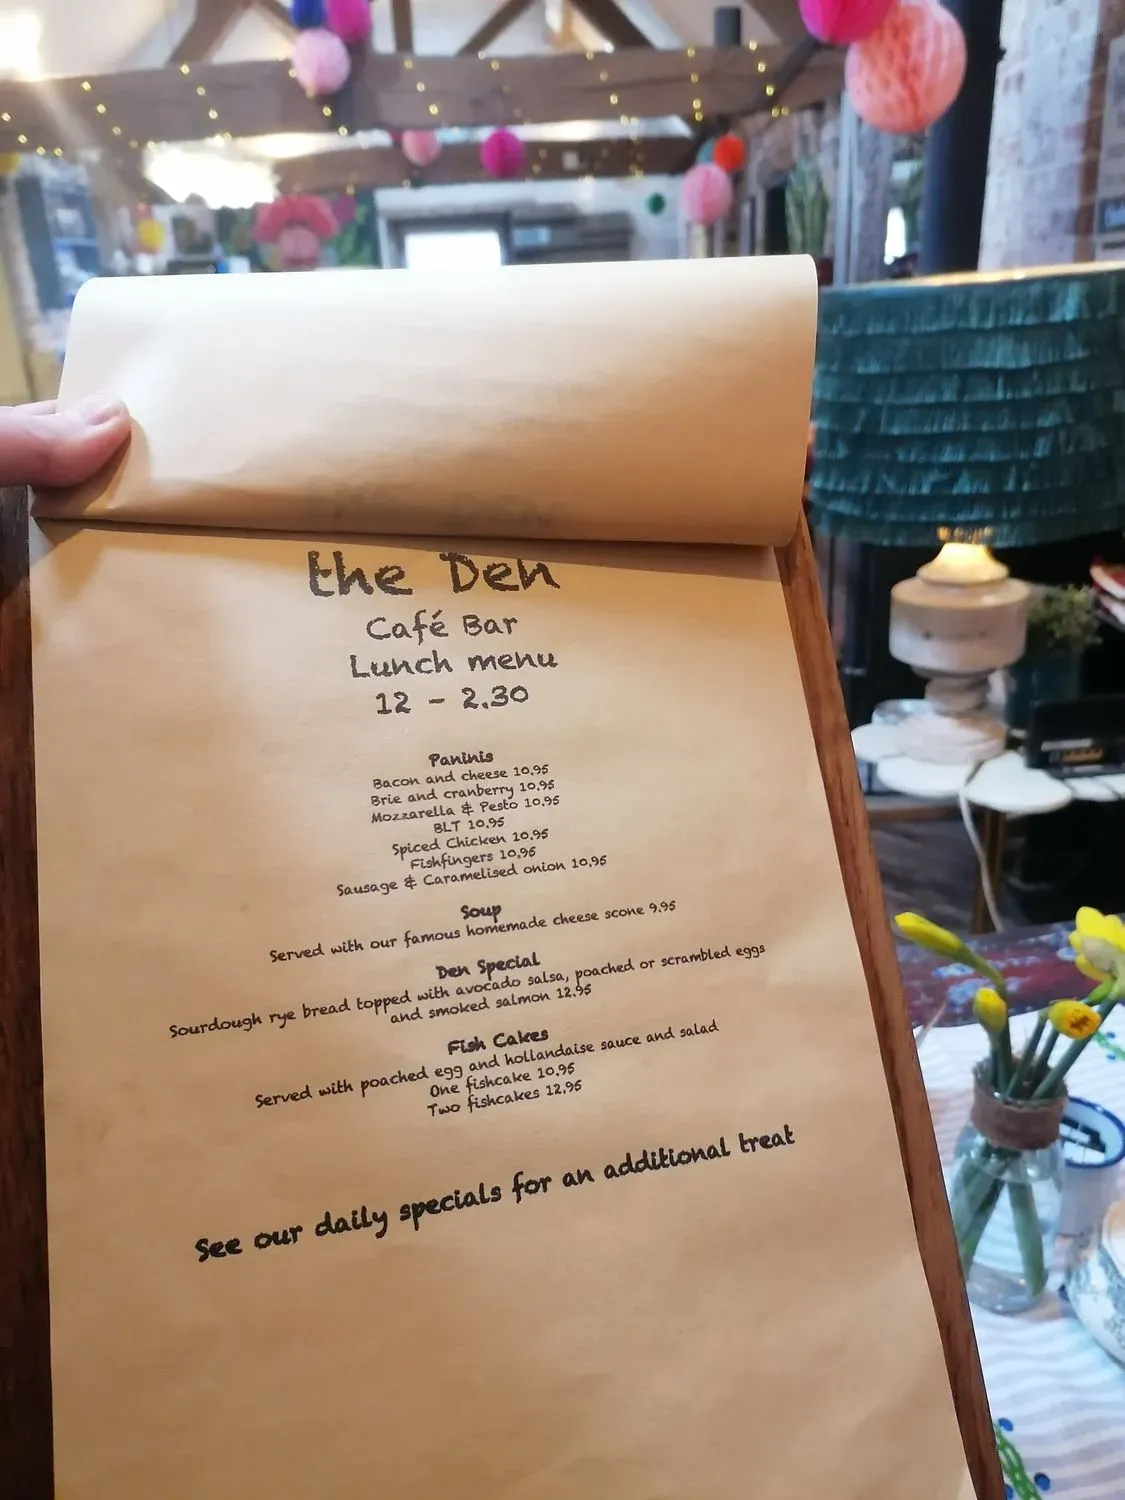 the Den
Café Bar
Lunch menu
12 - 2.30
Paninis
Bacon and cheese 10.95
Brie and cranberry 10.95
Mozzarella & Pesto 10.95
BLT 10.95
Spiced Chicken 10.95
Fishfingers 10.95
Sausage & Caramelised onion 10.95
Soup
Served with our famous homemade cheese scone 9.95
Den Special
Sourdough rye bread topped with avocado salsa, poached or scrambled eggs
and smoked salmon 12.95
Fish Cakes
Served with poached egg and hollandaise sauce and salad
One fishcake 10.95
Two fishcakes 12.95
See our daily specials for an additional treat